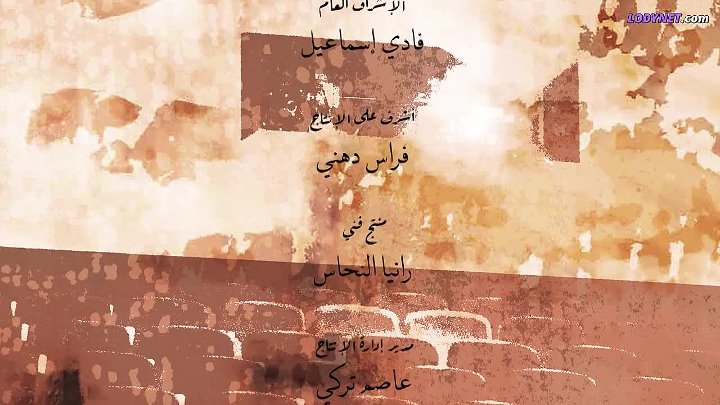 LODYNET.com
الإشراف العام
فادي إسماعيل
أشرف على الإنتاج
فراس دهني
منتج فني
رانيا النحاس
مدير إدارة الإنتاج
عاصم تركي